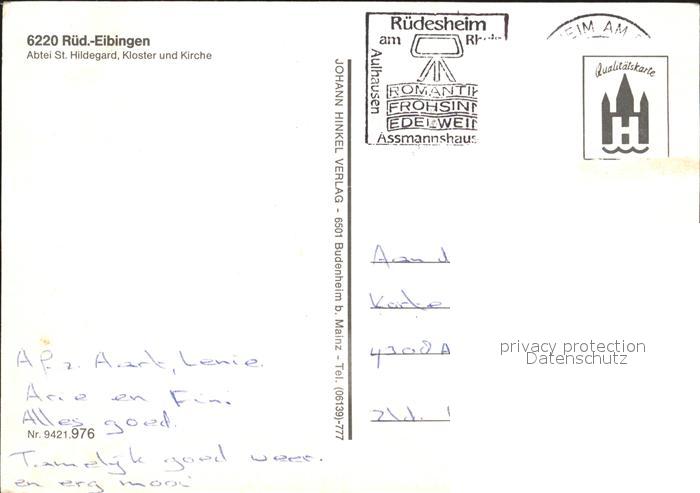 6220 Rüd.-Eibingen
Abtei St. Hildegard, Kloster und Kirche
Rüdesheim
am Rhein
Aulhausen
ROMANTIK
FROHSINN
EDELWEIN
Assmannshaus
HEIM AM
Qualitätskarte
H
JOHANN HINKEL VERLAG - 6501 Budenheim b. Mainz - Tel. (06139)-777
Afz. Aart, Lenie.
Arie en Fin.
Alles goed.
Nr. 9421.976
Tamelijk goed weer.
en erg mooi
4308A
Zld.
privacy protection
Datenschutz